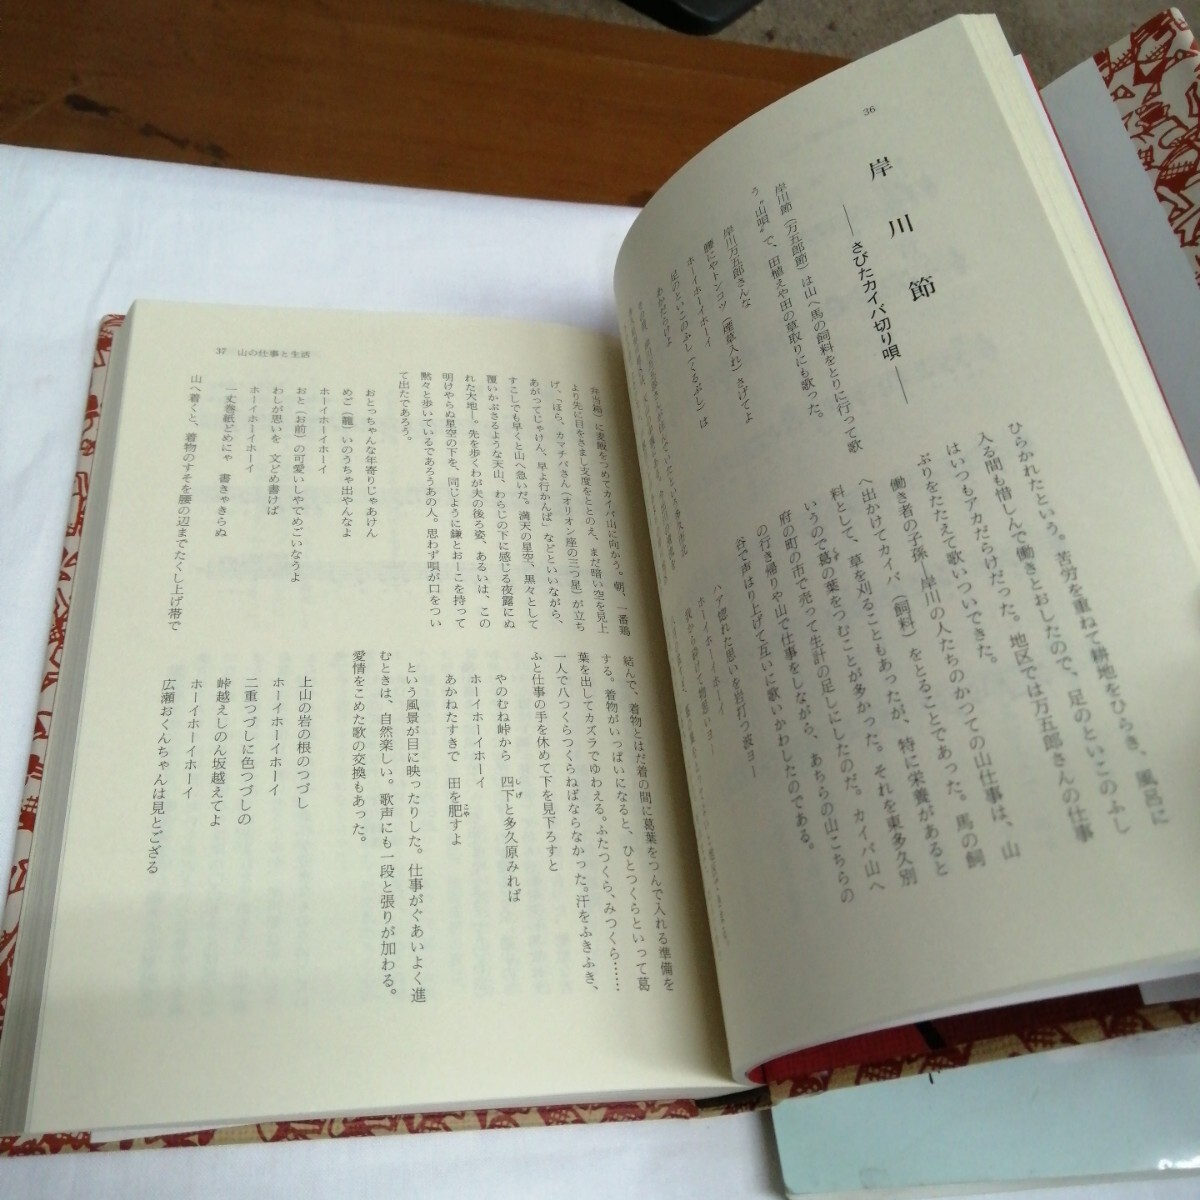 36
岸川節
――さびたカイバ切り唄――
岸川節（万五郎節）は山へ馬の飼料をとりに行って歌
う〝山唄〟で、田植えや田の草取りにも歌った。
岸川万五郎さんな
腰にやトンコツ（煙草入れ）さげてよ
ホーイホーイホーイ
足のといこのふし（くるぶし）は
あかだらけよ
ひらかれたという。苦労を重ねて耕地をひらき、風呂に
入る間も惜しんで働きとおしたので、足のといこのふし
はいつもアカだらけだった。地区では万五郎さんの仕事
ぶりをたたえて歌いついできた。
働き者の子孫―岸川の人たちのかつての山仕事は、山
へ出かけてカイバ（飼料）をとることであった。馬の飼
料として、草を刈ることもあったが、特に栄養があると
いうので葛の葉をつむことが多かった。それを東多久別
府の町の市で売って生計の足しにしたのだ。カイバ山へ
の行き帰りや山で仕事をしながら、あちらの山こちらの
谷で声はり上げて互いに歌いかわしたのである。
ハイ惚れた思いを岩打つ波ヨー
ホーイホーイホーイ
37 山の仕事と生活
弁当箱）に麦飯をつめてカイバ山に向かう。朝、一番鶏
より先に目をさまし支度をととのえ、まだ暗い空を見上
げ、「ほら、カマチバさん（オリオン座の三つ星）が立ち
あがってじゃけん、早よ行かんば」などといいながら、
すこしでも早くと山へ急いだ。満天の星空、黒々として
覆いかぶさるような天山、わらじの下に感じる夜露にぬ
れた大地―。先を歩くわが夫の後ろ姿、あるいは、この
明けやらぬ星空の下を、同じように鎌とおーこを持って
黙々と歩いているであろうあの人。思わず唄が口をつい
て出たであろう。
おとっちゃんな年寄りじゃあけん
めご（籠）いのうちゃ出やんなよ
ホーイホーイホーイ
おと（お前）の可愛いしやでめごいなうよ
わしが思いを 文どめ書けば
ホーイホーイホーイ
一丈巻紙どめにゃ 書きゃきらぬ
山へ着くと、着物のすそを腰の辺までたくし上げ帯で
結んで、着物とはだ着の間に葛葉をつんで入れる準備を
する。着物がいっぱいになると、ひとつくらといって葛
葉を出してカズラでゆわえる。ふたつくら、みつくら……
一人で八つくらつくらねばならなかった。汗をふきふき、
ふと仕事の手を休めて下を見下ろすと
やのむね峠から 四下と多久原みれば
しげ
ホーイホーイホーイ
あかねたすきで 田を肥すよ
こや
という風景が目に映ったりした。仕事がぐあいよく進
むときは、自然楽しい。歌声にも一段と張りが加わる。
愛情をこめた歌の交換もあった。
上山の岩の根のつづし
ホーイホーイホーイ
二重つづしに色つづしの
峠越えしのん坂越えてよ
ホーイホーイホーイ
広瀬おくんちゃんは見とござる